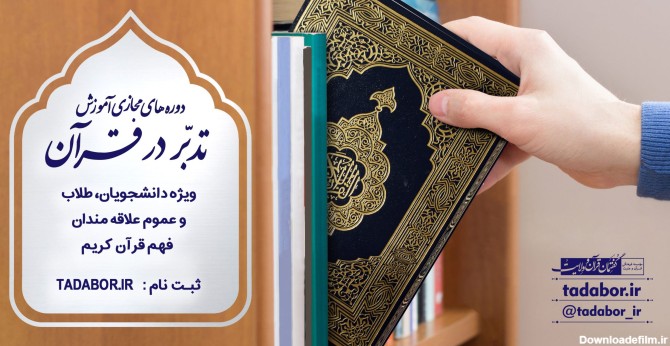 دوره های مجازی آموزش
تدبّر در قرآن
ویژه دانشجویان، طلاب
و عموم علاقه مندان
فهم قرآن کریم
ثبت نام : TADABOR.IR
گفتمان قرآن و ولایت
tadabor.ir
@tadabor_ir
Downloadefilm.ir